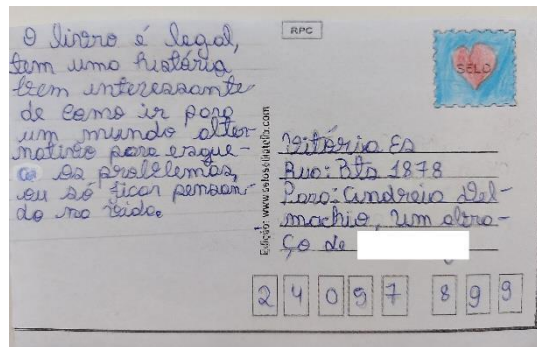 O livro é legal,
tem uma história
bem interessante
de como ir para
um mundo alter
nativo para esque-
ce os problemas,
ou só ficar pensan-
do na vida.
RPC
SELO
Edição: www.seloseflatelia.com
Vitória Es
Rua: Bts 1878
Para: Andreia Del-
machio, um abra-
ço de
24097 899